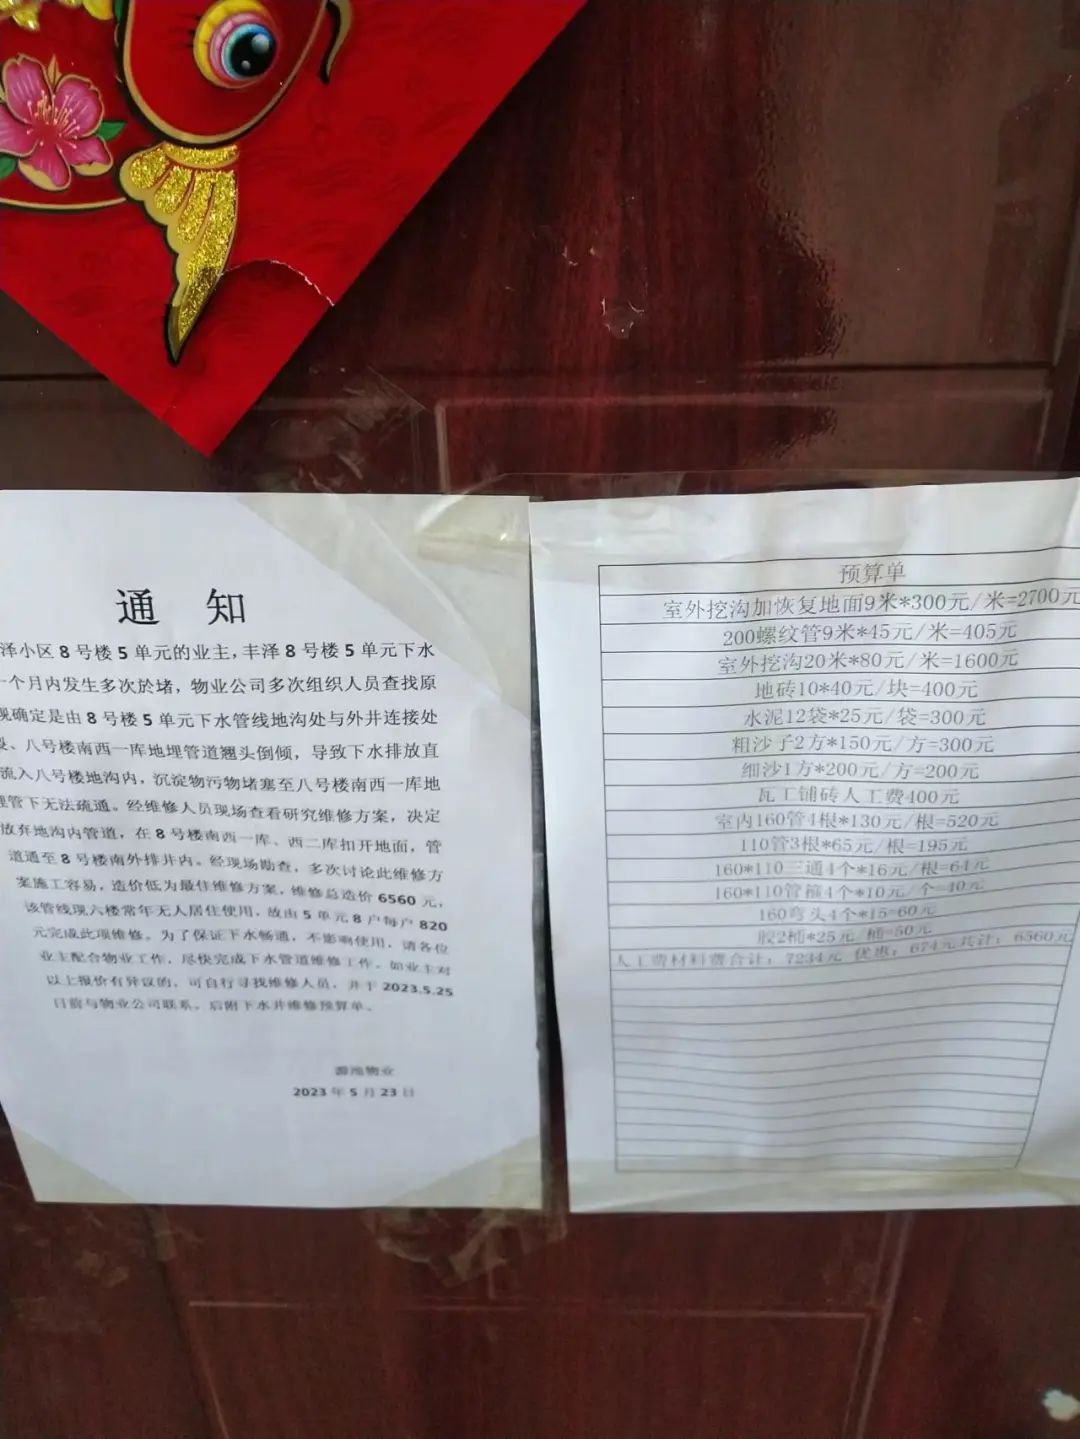 通 知
泽小区 8 号楼 5 单元的业主，丰泽 8 号楼 5 单元下水
一个月内发生多次於堵，物业公司多次组织人员查找原
现确定是由 8 号楼 5 单元下水管线地沟处与外井连接处
裂、八号楼南西一库地埋管道翘头倒倾，导致下水排放直
流入八号楼地沟内，沉淀物污物堵塞至八号楼南西一库地
埋管下无法疏通。经维修人员现场查看研究维修方案，决定
放弃地沟内管道，在 8 号楼南西一库、西二库扣开地面，管
道通至 8 号楼南外排井内。经现场勘查，多次讨论此维修方
案施工容易，造价低为最佳维修方案，维修总造价 6560 元，
该管线现六楼常年无人居住使用，故由 5 单元 8 户每户 820
元完成此项维修。为了保证下水畅通，不影响使用，请各位
业主配合物业工作，尽快完成下水管道维修工作。如业主对
以上报价有异议的，可自行寻找维修人员，并于 2023.5.25
日前与物业公司联系。后附下水井维修预算单。
物业
2023 年 5 月 23 日
预算单
室外挖沟加恢复地面9米*300元/米=2700元
200螺纹管9米*45元/米=405元
室外挖沟20米*80元/米=1600元
地砖10*40元/块=400元
水泥12袋*25元/袋=300元
粗沙子2方*150元/方=300元
细沙1方*200元/方=200元
瓦工铺砖人工费400元
室内160管4根*130元/根=520元
110管3根*65元/根=195元
160*110三通4个*16元/根=64元
160*110管箍4个*10元/个=40元
160弯头4个*15=60元
胶2桶*25元/桶=50元
人工费材料费合计：7234元 优惠：674元共计：6560元